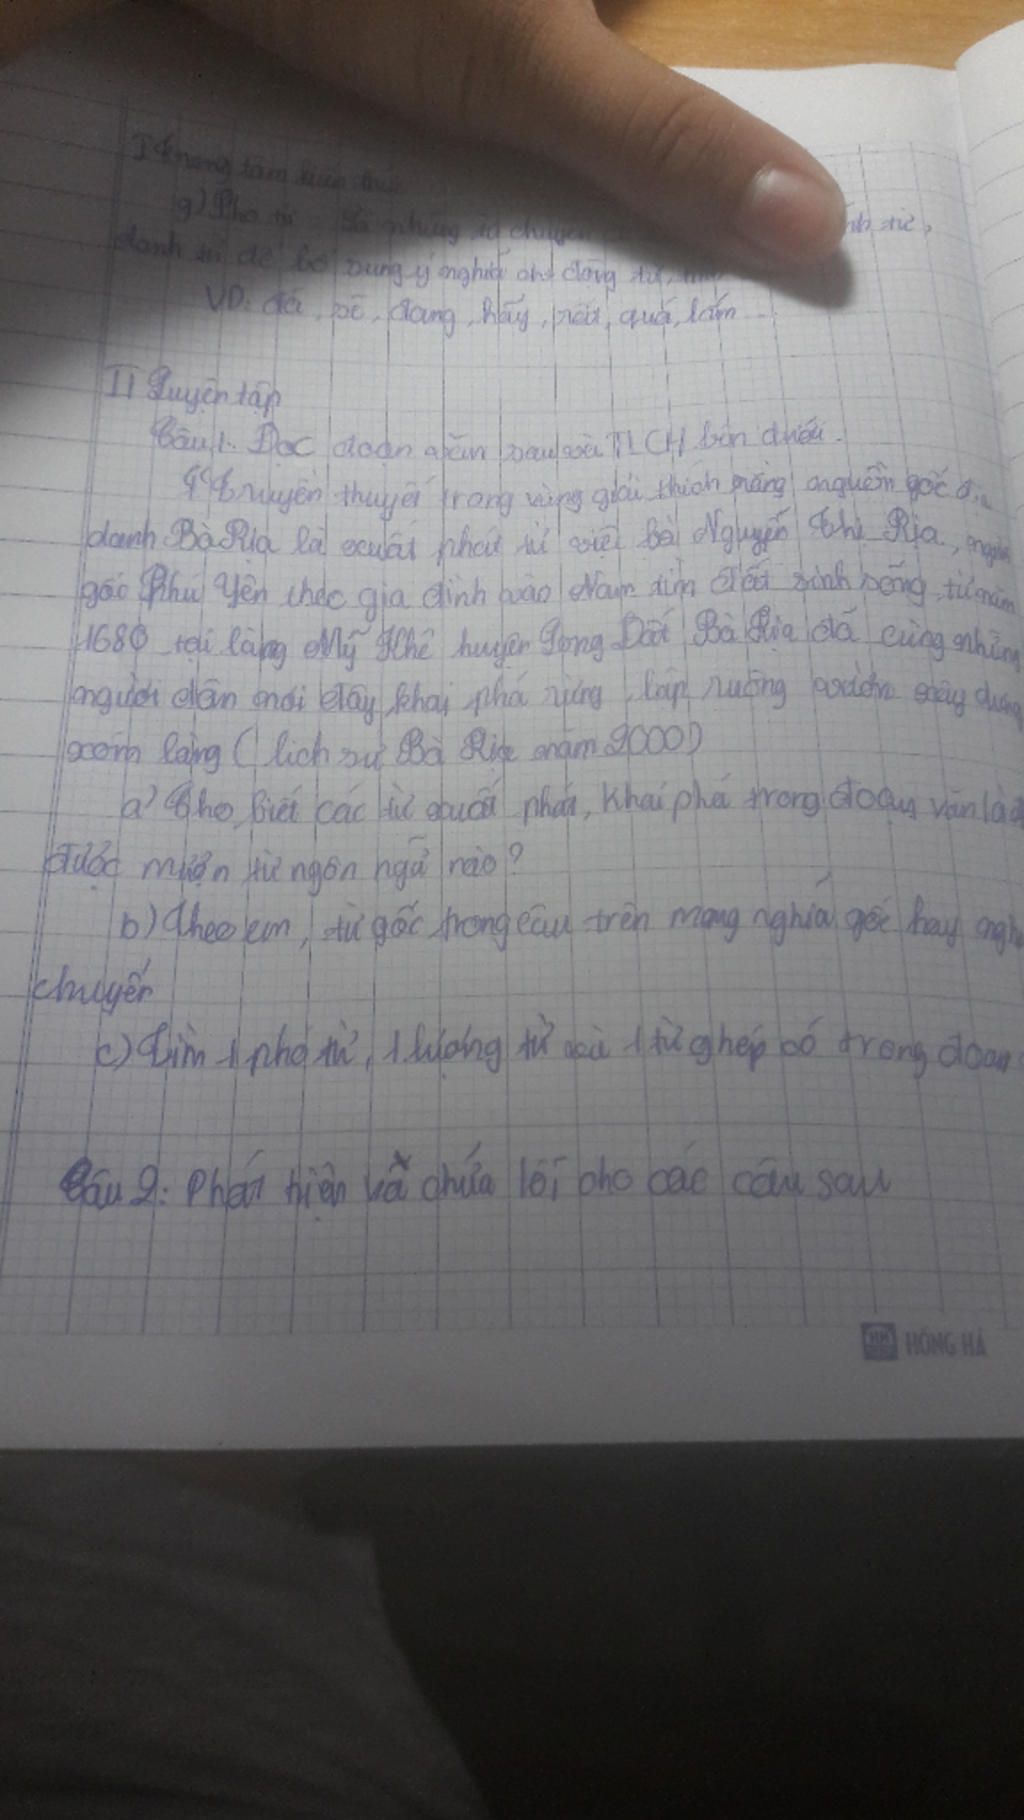 I Trọng tâm kiến thức
g) Phó từ là những từ chuyên từ,
danh từ để bổ sung ý nghĩa cho động từ,
VD: đã, sẽ, đang, hãy, rất, quá, lắm...
II Luyện tập
Câu 1. Đọc đoạn văn sau và TLCH bên dưới.
"Truyền thuyết trong vùng giải thích rằng nguồn gốc địa
danh Bà Rịa là xuất phát từ việc bà Nguyễn Thị Rịa, người
gốc Phú Yên theo gia đình vào Nam tìm đất sinh sống từ năm
1680 tại làng Mỹ Khê huyện Long Đất Bà Rịa đã cùng những
người dân nơi đây khai phá rừng, lập ruộng vườn xây dựng
xóm làng (lịch sử Bà Rịa năm 2000)
a) Cho biết các từ xuất phát, khai phá trong đoạn văn là
được mượn từ ngôn ngữ nào?
b) Theo em, từ gốc trong câu trên mang nghĩa gốc hay nghĩa
chuyển
c) Tìm 1 phó từ, 1 lượng từ và 1 từ ghép có trong đoạn
Câu 2: Phát hiện và chữa lỗi cho các câu sau
HH HỒNG HÀ